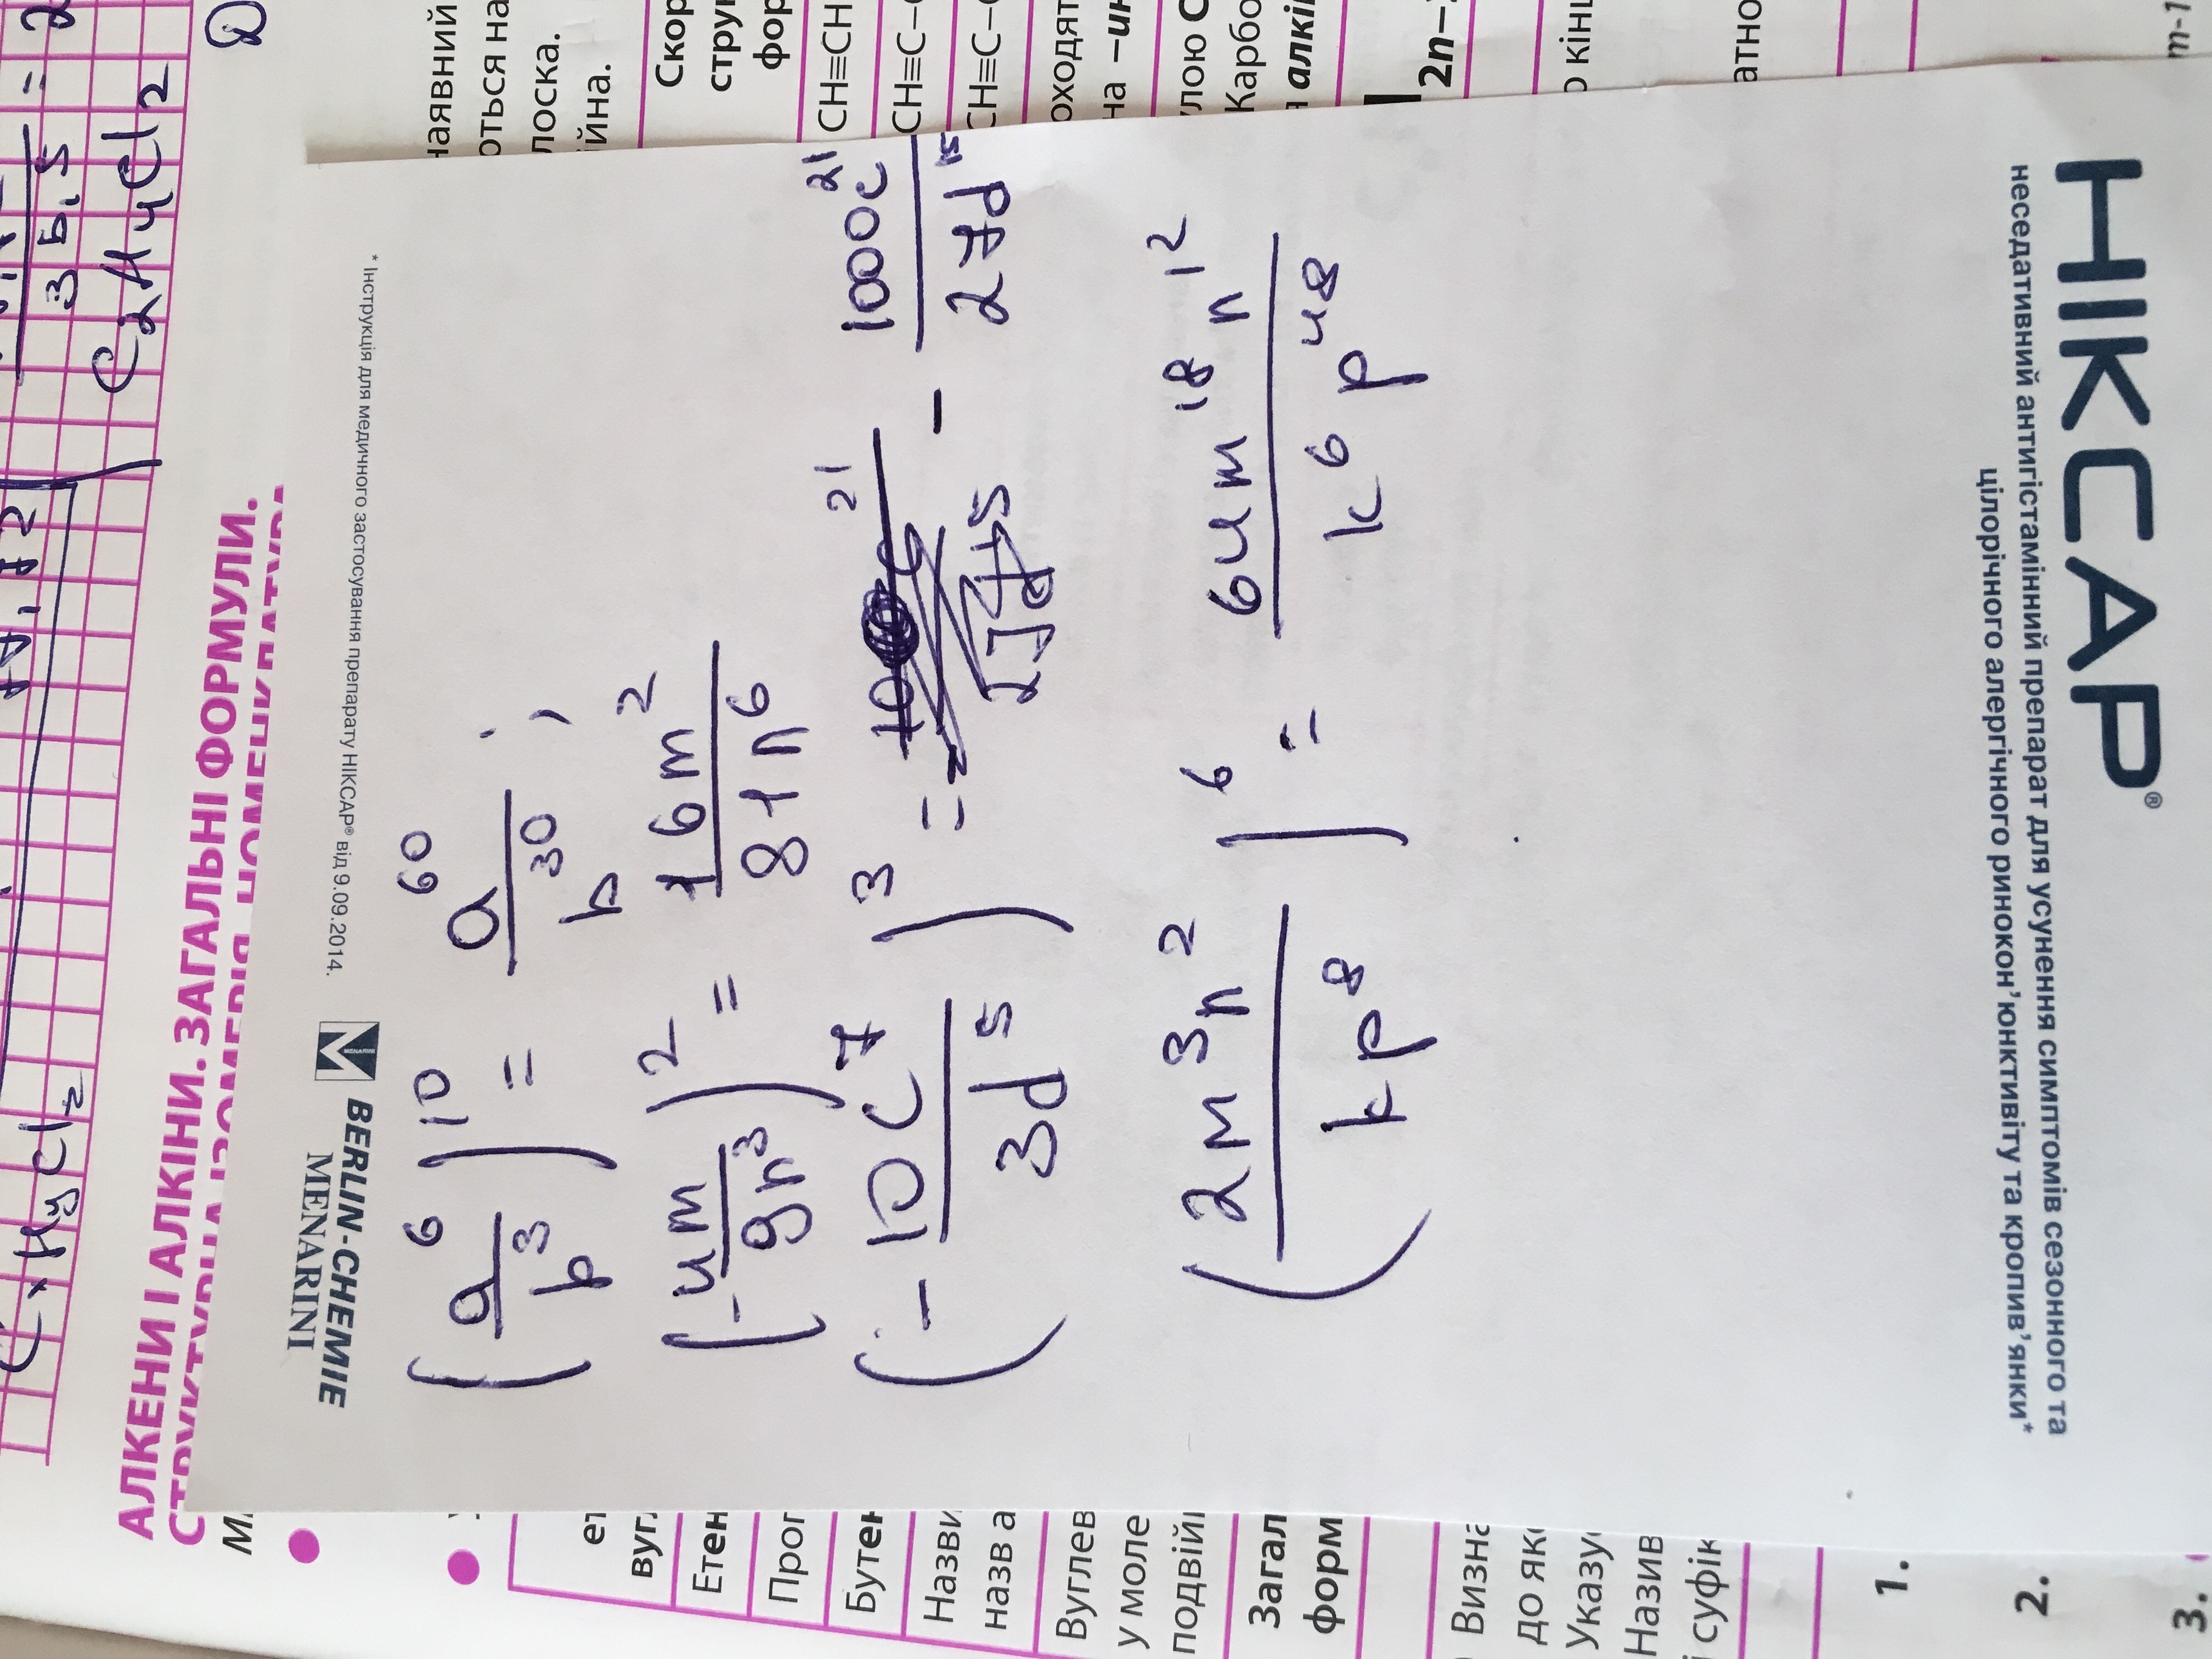 CxHyCl2
35,5 = 2
C2H4Cl2
АЛКЕНИ І АЛКІНИ. ЗАГАЛЬНІ ФОРМУЛИ.
СТРУКТУРНА ІЗОМЕРІЯ. НОМЕНКЛАТУРА
наявний
оться на
лоска.
йна.
Скор
струк
фор
CH≡CH
CH≡C–C
CH≡C–
оходят
на –ин
улою C
Карбо
алкі
2n–
о кінц
атно
m-1
* Інструкція для медичного застосування препарату НІКСАР® від 9.09.2014.
BERLIN-CHEMIE
MENARINI
(a^6/b^3)^10 = a^60/b^30 ;
(-4m/9n^3)^2 = 16m^2/81n^6
(-10c^7/3d^5)^3 = - 1000c^21/27d^15
(2m^3n^2/kp^8)^6 = 64m^18n^12/k^6p^48
НІКСАР®
неседативний антигістамінний препарат для усунення симптомів сезонного та
цілорічного алергічного ринокон'юнктивіту та кропив'янки*
ет
вугл
Етен
Проп
Бутен
Назви
назв а
Вуглев
у моле
подвійн
Загал
форм
Визна
до яко
Указу
Назив
і суфік
1.
2.
3.